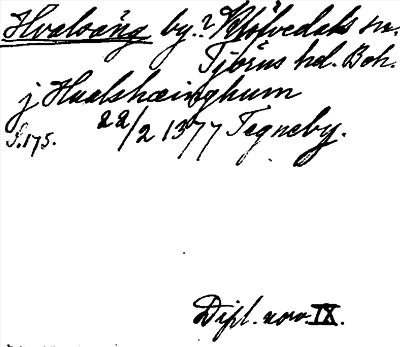 Hvaloäng by.? Klöfvedals sn.
Tjörns hd. Boh.
j Hualshæinghum
S.175. 22/2 1377 Tegneby.
Dipl. norv. IX.